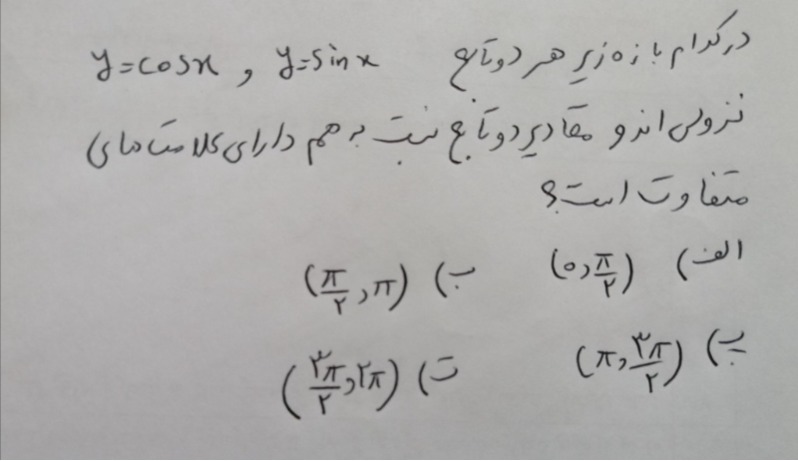 در کدام بازه زیر هر دو تابع y=sinx و y=cosx
نزولی اند و مقادیر دو تابع نسبت به هم دارای علامت های
متفاوت است؟
الف) (۰, π/۲) ب) (π/۲, π)
پ) (π, ۳π/۲) ت) (۳π/۲, ۲π)